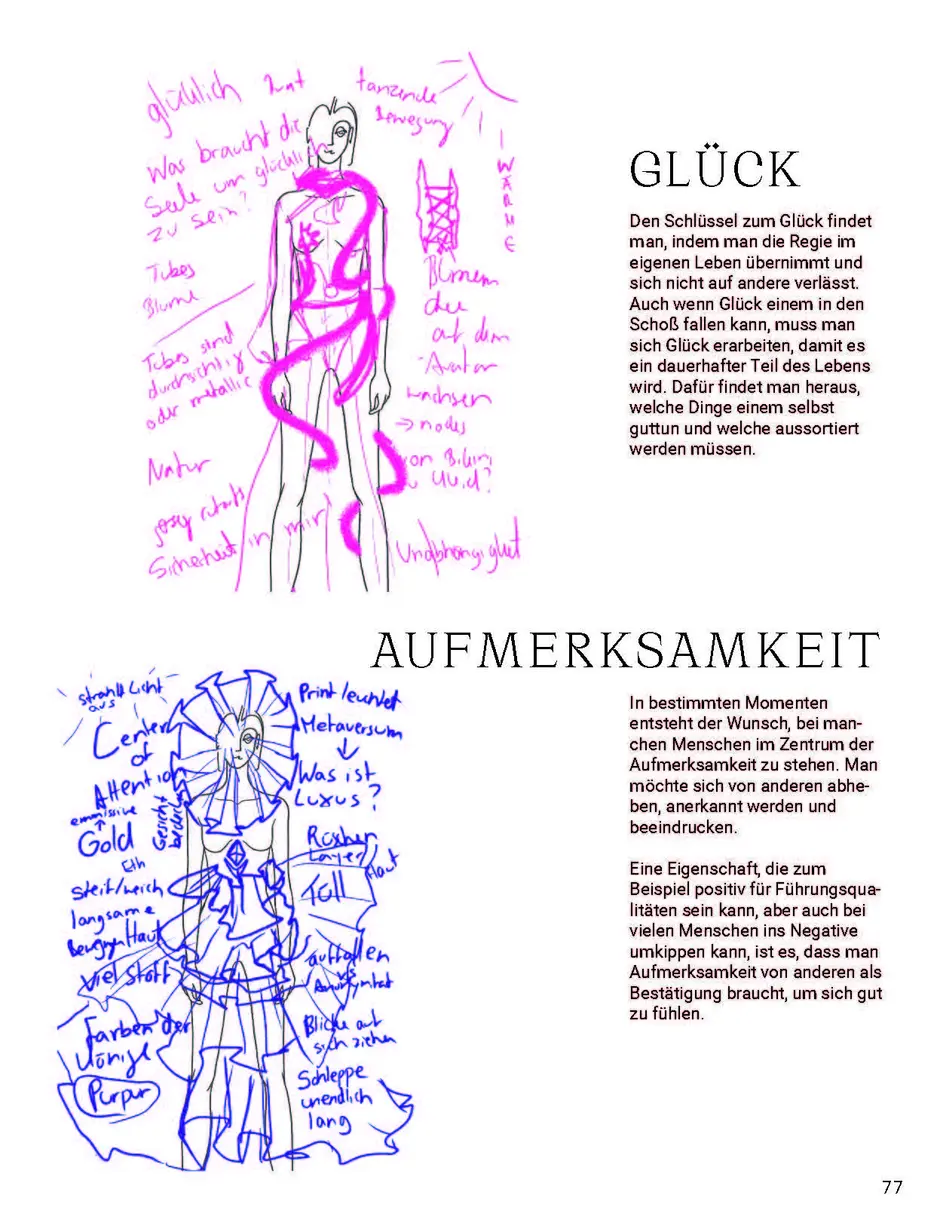 glücklich
tanzende
Bewegung
Was braucht die
Seele um glücklich
zu sein?
WÄRME
Tubes
Blume
Blumen
die
auf dem
Avatar
wachsen
Tubes sind
durchsichtig
oder metallic
→ nodes
Natur
Sicherheit in mir
Unabhängigkeit
GLÜCK
Den Schlüssel zum Glück findet
man, indem man die Regie im
eigenen Leben übernimmt und
sich nicht auf andere verlässt.
Auch wenn Glück einem in den
Schoß fallen kann, muss man
sich Glück erarbeiten, damit es
ein dauerhafter Teil des Lebens
wird. Dafür findet man heraus,
welche Dinge einem selbst
guttun und welche aussortiert
werden müssen.
AUFMERKSAMKEIT
strahlt Licht
aus
Center
of
Attention
emmissive
Gold
Gesicht
Eth
steif/weich
langsame
viel Stoff
Farben der
Könige
Purpur
Print leuchtet
Metaversum
↓
Was ist
Luxus?
Rüschen
Layer
Haut
Tüll
auffallen
vs
Anonymität
Blicke auf
sich ziehen
Schleppe
unendlich
lang
In bestimmten Momenten
entsteht der Wunsch, bei man-
chen Menschen im Zentrum der
Aufmerksamkeit zu stehen. Man
möchte sich von anderen abhe-
ben, anerkannt werden und
beeindrucken.
Eine Eigenschaft, die zum
Beispiel positiv für Führungsqua-
litäten sein kann, aber auch bei
vielen Menschen ins Negative
umkippen kann, ist es, dass man
Aufmerksamkeit von anderen als
Bestätigung braucht, um sich gut
zu fühlen.
77